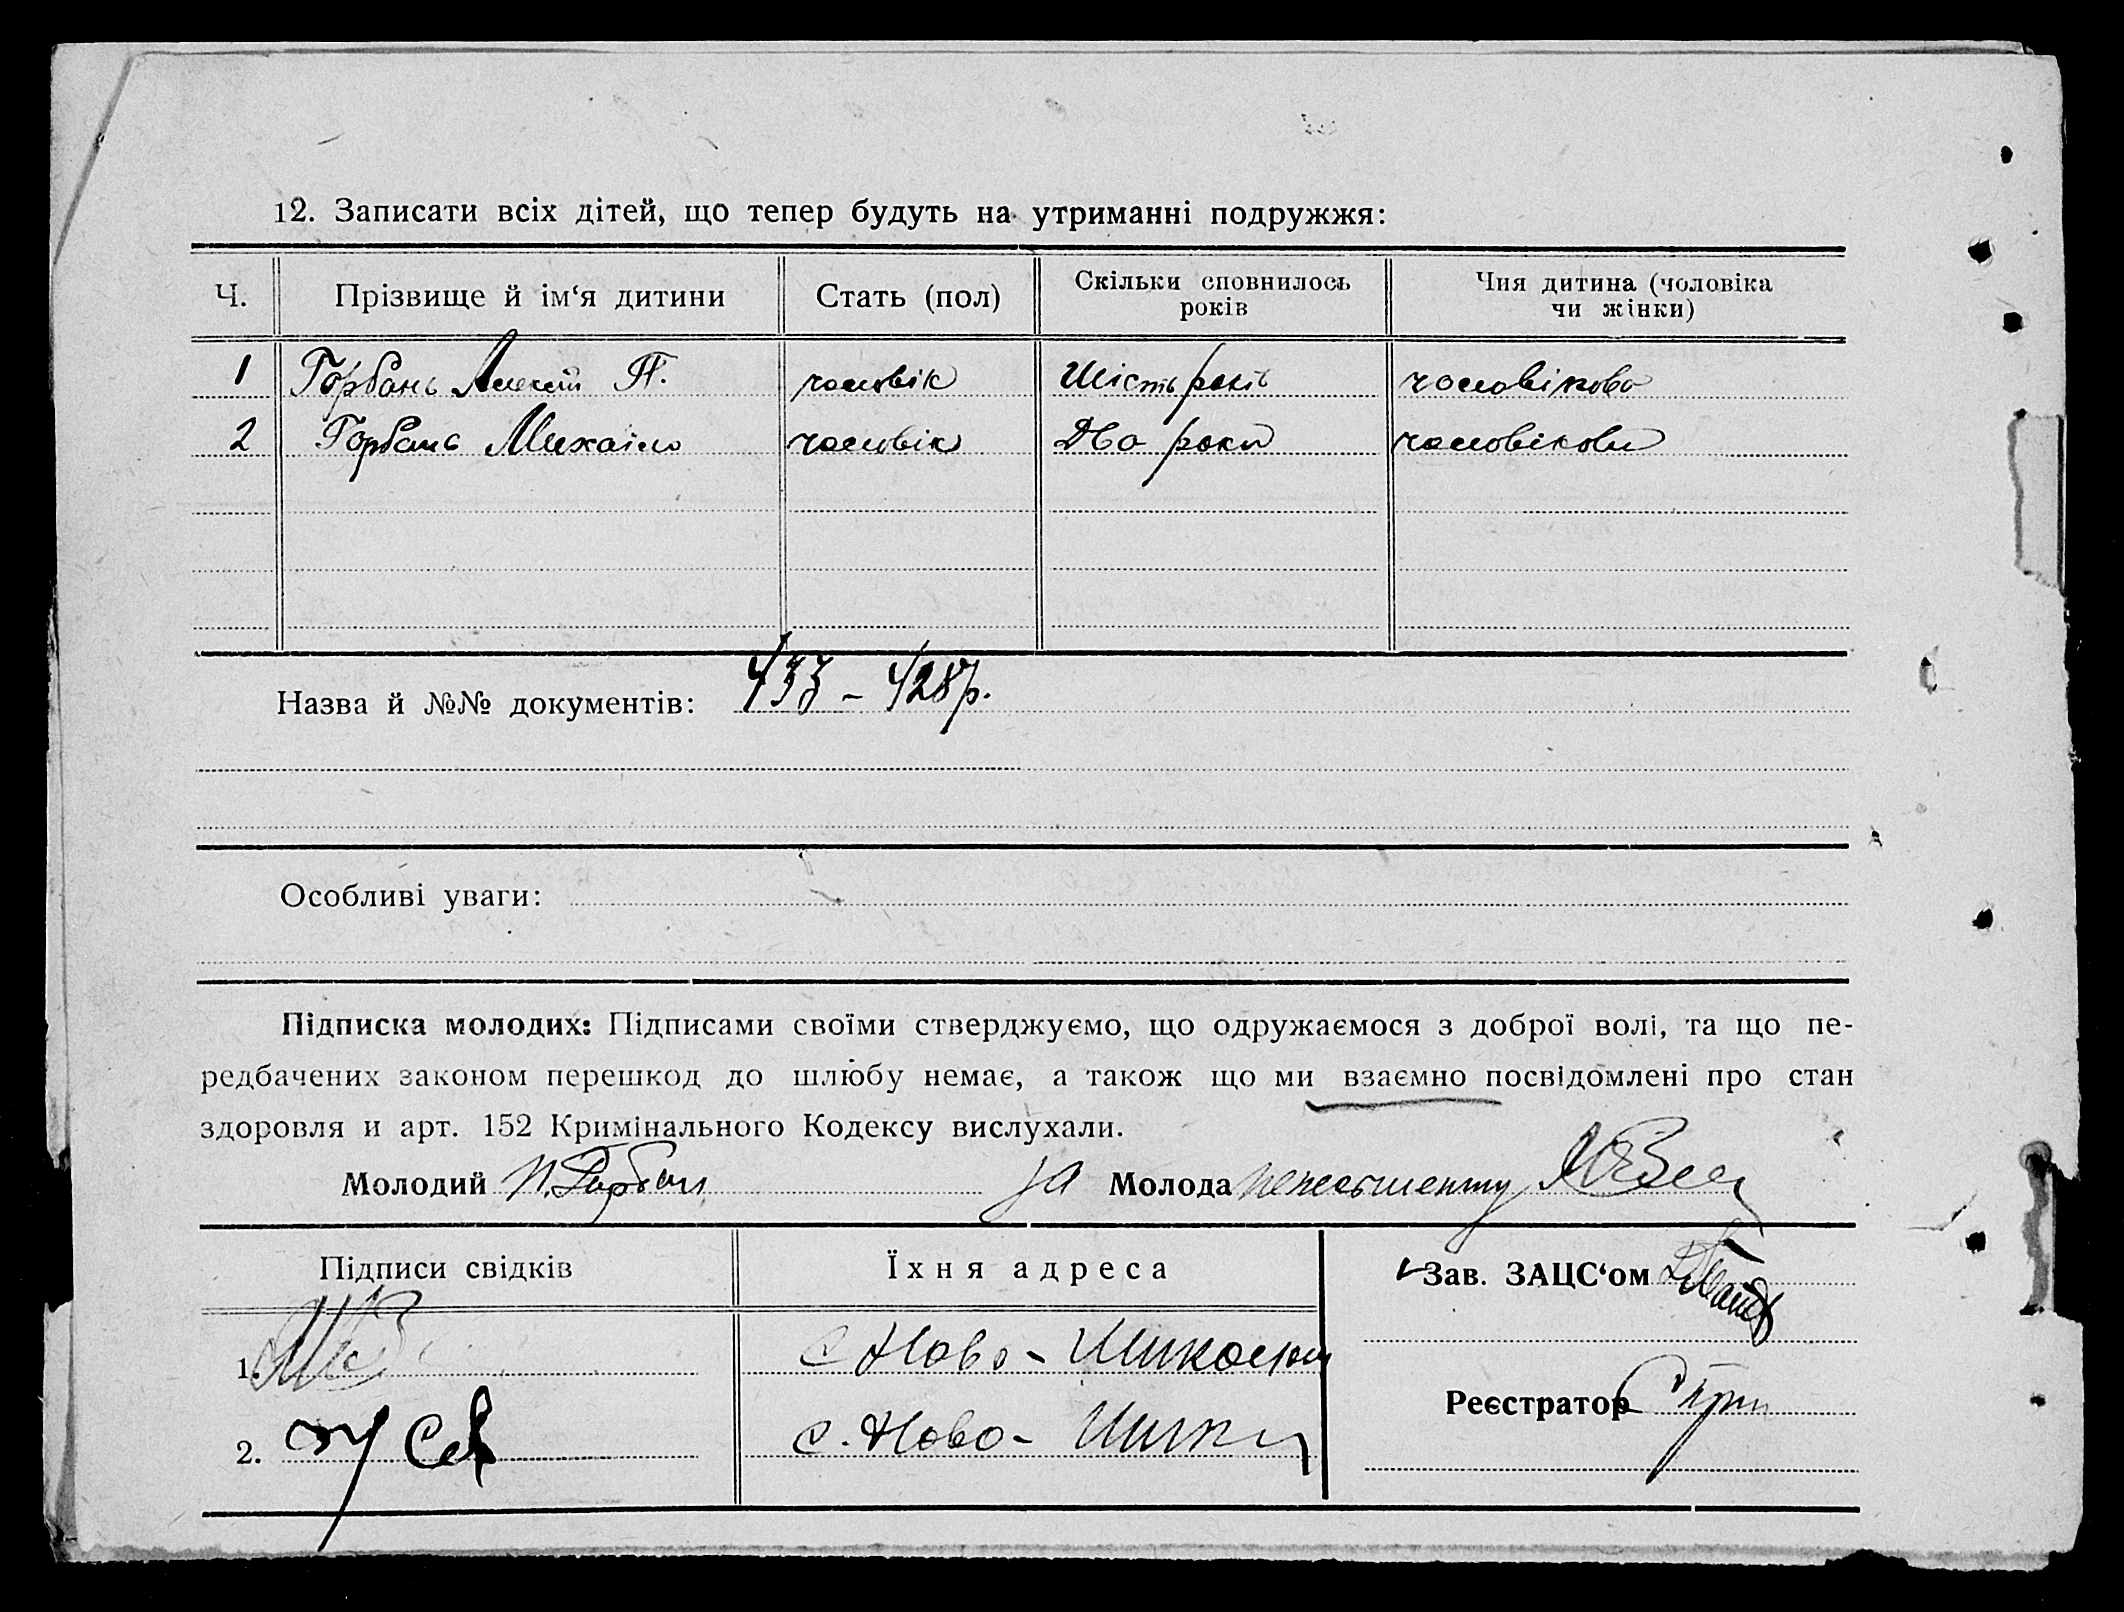 12. Записати всіх дітей, що тепер будуть на утриманні подружжя:
Ч. Прізвище й ім‘я дитини Стать (пол) Скільки сповнилось років Чия дитина (чоловіка чи жінки)
1 Горбань Алексій П. чоловік Шість років чоловікова
2 Горбань Михаіло чоловік Два роки чоловікови
Назва й №№ документів: 4/33 – 4/28р.
Особливі уваги:
Підписка молодих: Підписами своїми стверджуємо, що одружаємося з доброї волі, та що пе-
редбачених законом перешкод до шлюбу немає, а також що ми взаємно посвідомлені про стан
здоровля и арт. 152 Кримінального Кодексу вислухали.
Молодий П. Горбань за Молода неписьменну
Підписи свідків Їхня адреса Зав. ЗАЦС‘ом
1. с Ново-
Реєстратор
2. с. Ново-